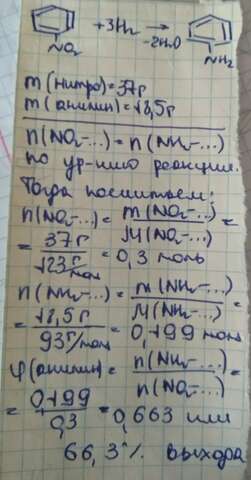 +3H₂ →
-2H₂O
NO₂ NH₂
m(нитро)=37г
m(анилин)=18,5г
n(NO₂-...)=n(NH₂-...)
по ур-нию реакции.
Тогда посчитаем:
n(NO₂-...)= m(NO₂-...)/M(NO₂-...) =
= 37г/123г/моль = 0,3 моль
n(NH₂-...)= m(NH₂-...)/M(NH₂-...) =
= 18,5г/93г/моль = 0,199 моль
φ(анилин)= n(NH₂-...)/n(NO₂-...) =
= 0,199/0,3 = 0,663 или
66,3% выхода